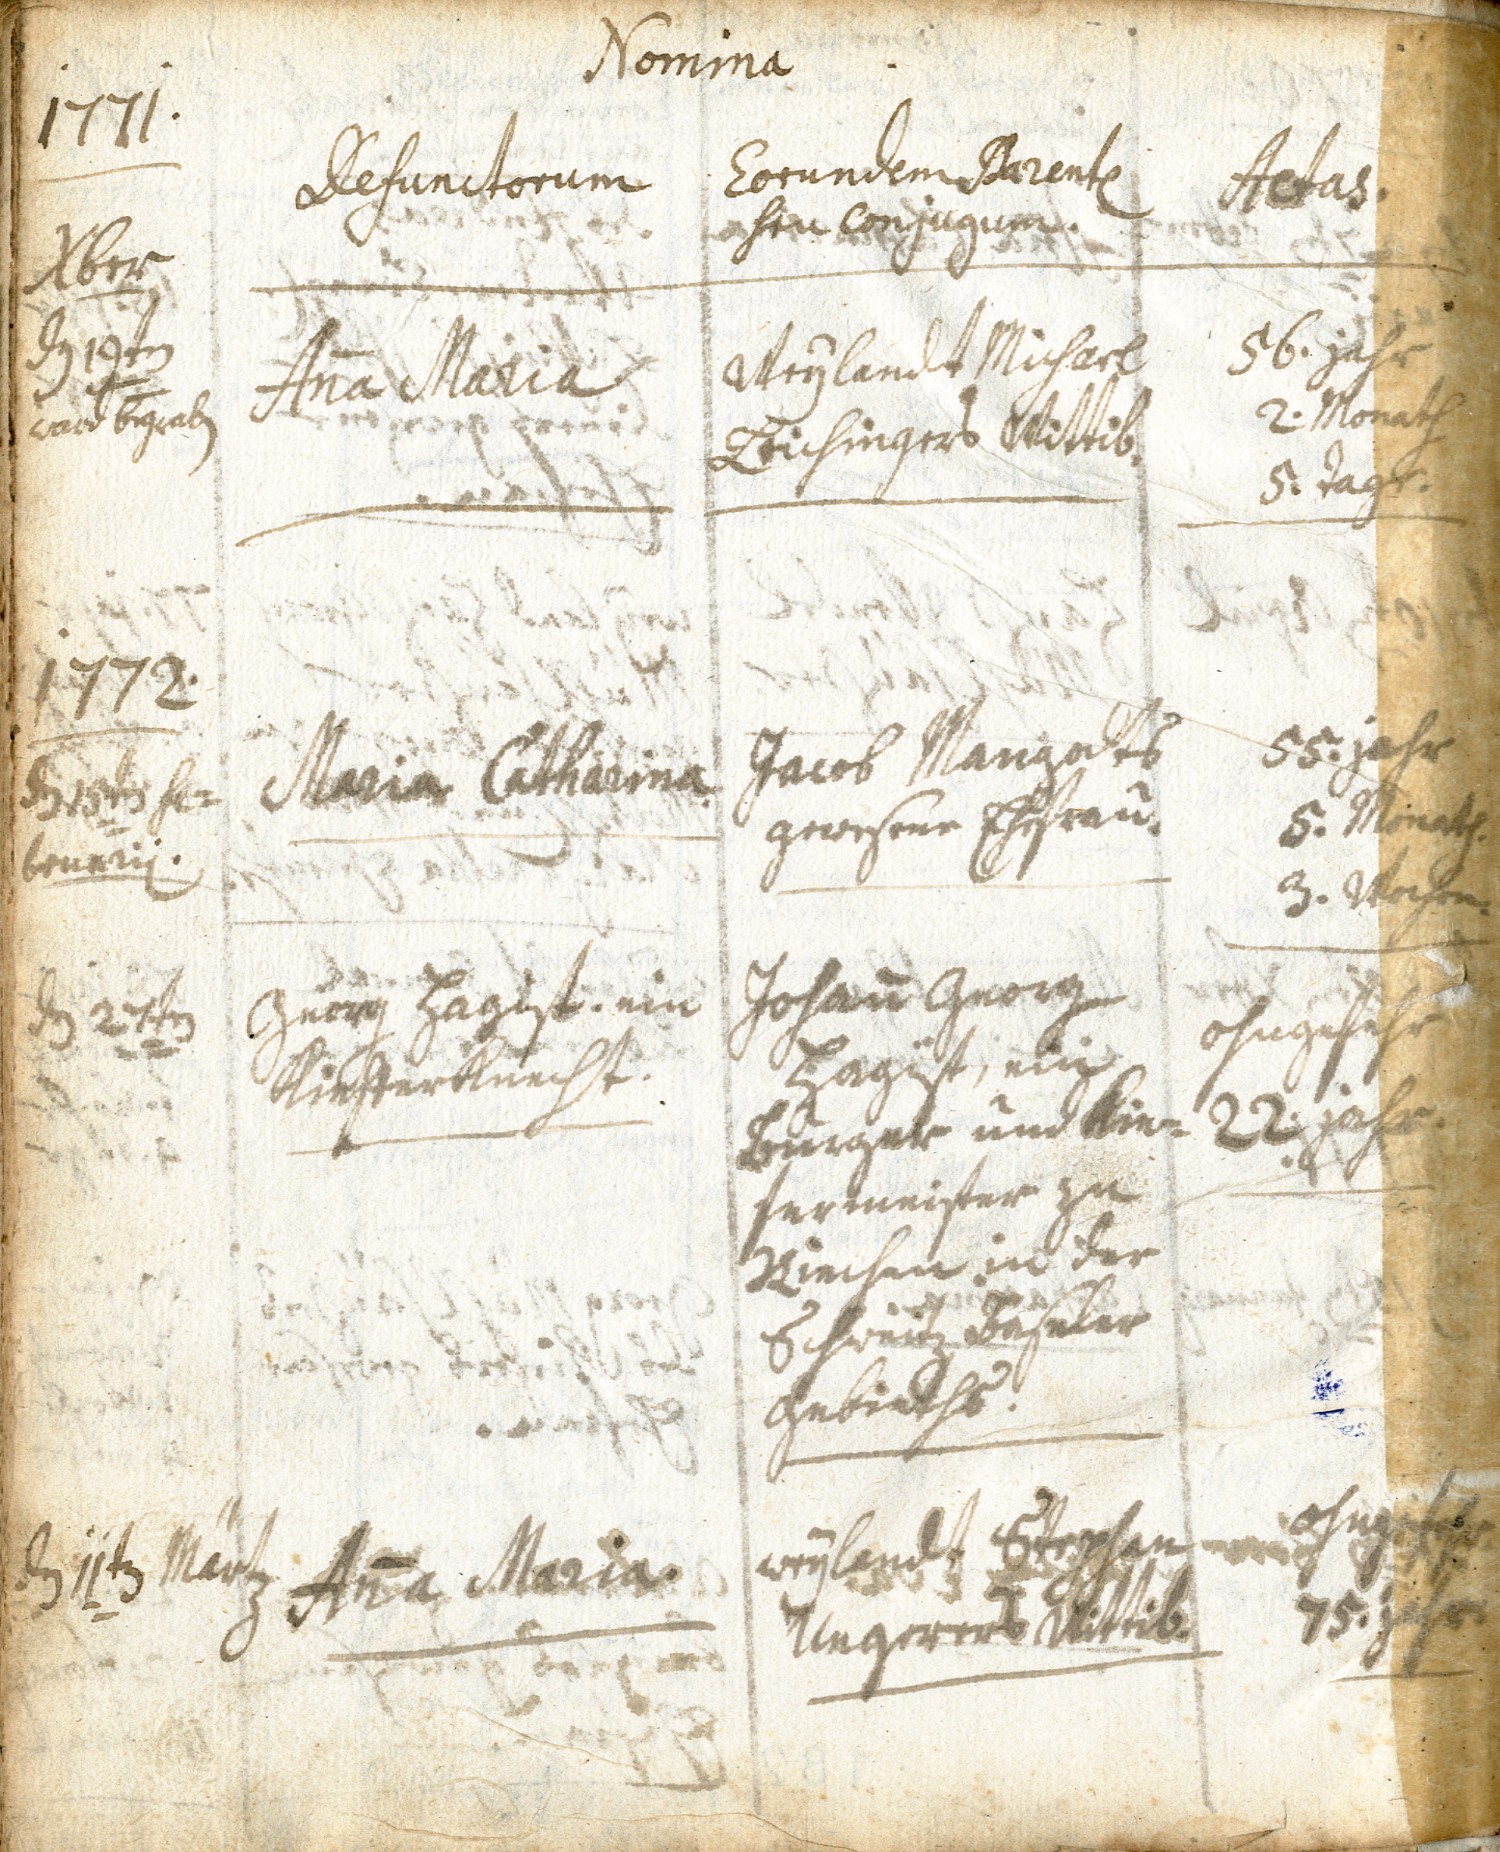 Nomina
1771.
Defunctorum
Eorundem Parent
seu conjugum.
Aetas.
Xber
dn 19tn
ward begrabn
Anna Maria
Weylandt Michael
Teichingers Wittib.
56. jahr
2. Monath
5. tage.
1772.
dn 15tn fe-
bruarij.
Maria Catharina
Jacob Mangolts
gewesene Ehefrau.
55. jahr
5. Monath.
3. Wochen.
dn 27tn
Georg Hagist. ein
Kieferknecht.
Johann Georg
Hagist, ein
Burger und Kie-
fermeister zu
Riechen in der
Schweitz Baseler
Gebieths.
ohngefehr
22. jahr.
dn 11tn Märtz
Anna Maria.
weylandt Stephan
Ungerers Wittib.
ohngefehr
75. jahr.